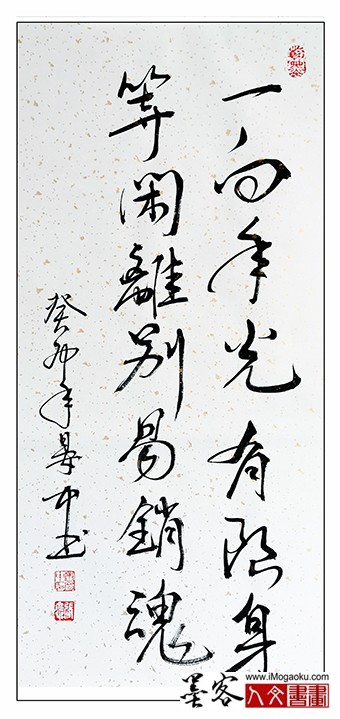 一向年光有限身
等闲離别易銷魂
癸卯年 中书
墨客
www.iMogaoku.com
人文書畫